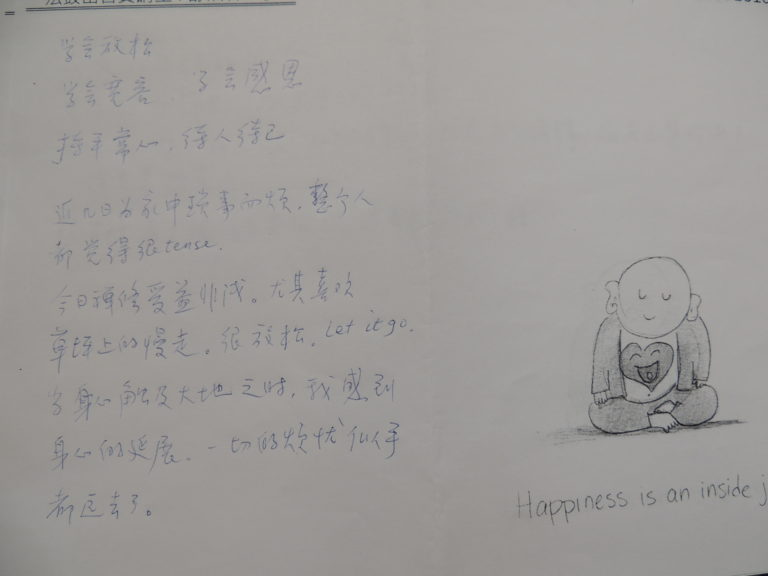 学会放松
学会宽容、学会感恩
持平常心，待人待己
近几日为家中琐事而烦，整个人
都觉得很tense.
今日禅修受益非浅。尤其喜欢
草坪上的慢走。很放松，Let it go.
当身心触及大地之时，我感到
身心的延展、一切的烦忧似乎
都远去了。
Happiness is an inside j